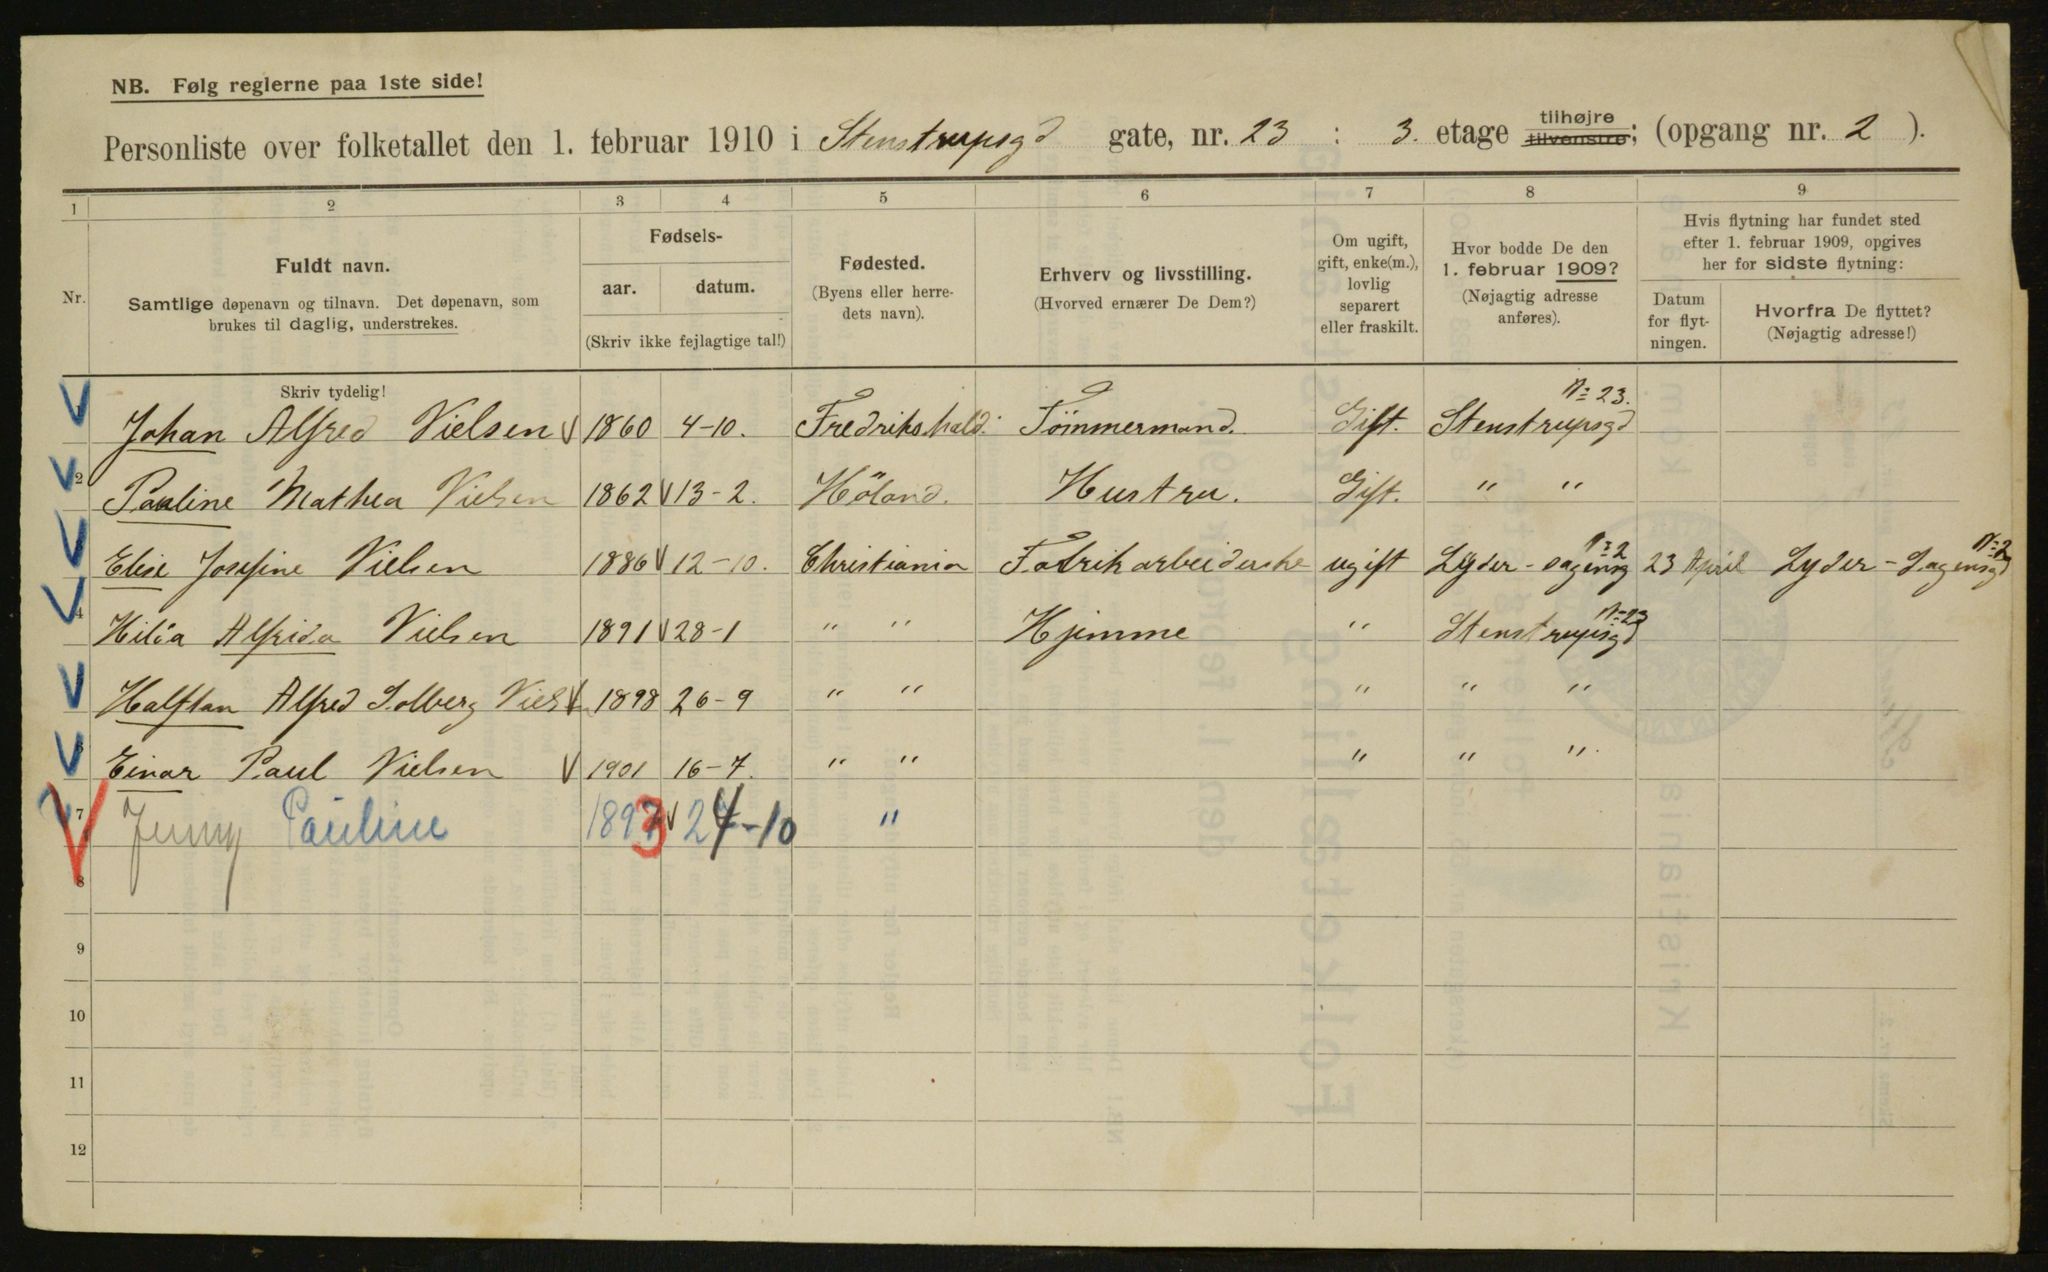 NB. Følg reglerne paa 1ste side!
Personliste over folketallet den 1. februar 1910 i Stenstrupsgd gate, nr. 23 : 3. etage tilhøjre tilvenstre; (opgang nr. 2 ).
1 2 3 4 5 6 7 8 9
Nr.
Fuldt navn.
Samtlige døpenavn og tilnavn. Det døpenavn, som
brukes til daglig, understrekes.
Fødsels-
aar. datum.
(Skriv ikke fejlagtige tal!)
Fødested.
(Byens eller herre-
dets navn).
Erhverv og livsstilling.
(Hvorved ernærer De Dem?)
Om ugift,
gift, enke(m.),
lovlig
separert
eller fraskilt.
Hvor bodde De den
1. februar 1909?
(Nøjagtig adresse
anføres).
Hvis flytning har fundet sted
efter 1. februar 1909, opgives
her for sidste flytning:
Datum
for flyt-
ningen.
Hvorfra De flyttet?
(Nøjagtig adresse!)
Skriv tydelig!
Johan Alfred Nielsen 1860 4-10. Fredrikshald. Tömmermand. Gift. Stenstrupsgd № 23.
2 Pauline Mathea Nielsen 1862 13-2. Höland. Hustru. Gift. " "
Elise Josefine Nielsen 1886 12-10. Christiania Fabrikarbeiderske ugift Lyder-Sagensg № 2 23 April Lyder-Sagensgd № 2
4 Hilda Alfrida Nielsen 1891 28-1 " " Hjemme " Stenstrupsgd № 23
Halftan Alfred Solberg Niels 1898 26-9 " " " " "
6 Einar Paul Nielsen 1901 16-7. " " " " "
7 Jenny Pauline 1893 24-10 "
8
9
10
11
12